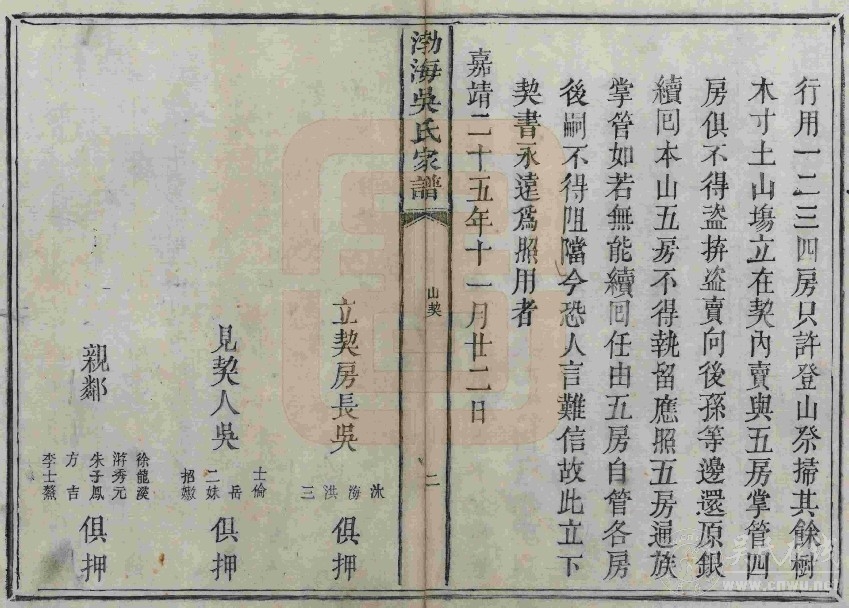 行用一二三四房只許登山祭掃其餘樹
木寸土山塲立在契內賣與五房掌管四
房俱不得盗拚盗賣向後孫等邊還原銀
續囘本山五房不得執留應照五房通族
掌管如若無能續囘任由五房自管各房
後嗣不得阻擋今恐人言難信故此立下
契書永遠爲照用者
嘉靖二十五年十一月廿二日
渤海吳氏家譜
山契
二
立契房長吳
洪
海
三
俱押
見契人吳
士倫
岳
二妹
招嫩
俱押
親鄰
徐龍漢
游秀元
朱子鳳
方吉
李士鰲
俱押
www.cnwu.net